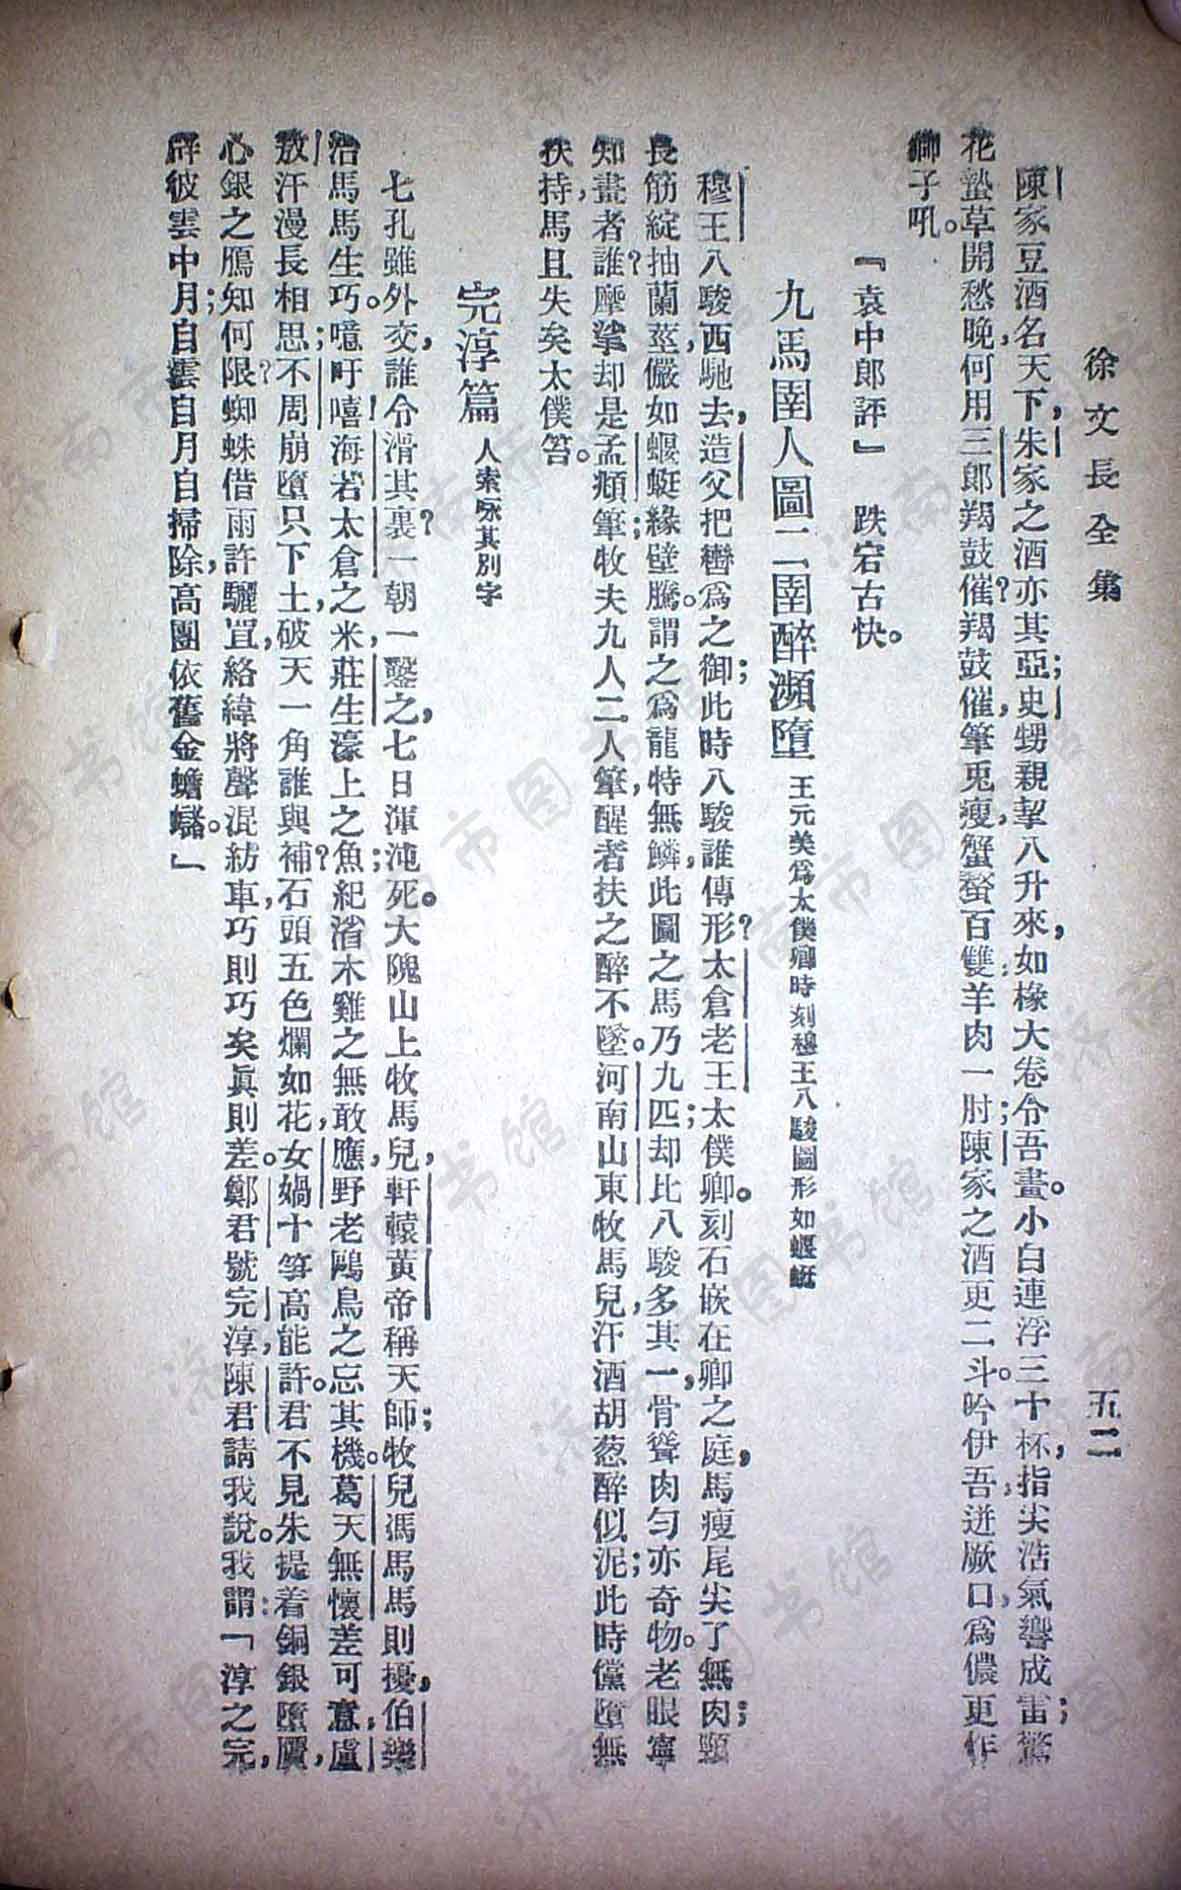 徐文長全集
五二
陳家豆酒名天下，朱家之酒亦其亞；史甥親挈八升來，如椽大卷令吾畫。小白連浮三十杯，指尖浩氣響成雷；驚
花蟄草開愁晚，何用三郎羯鼓催？羯鼓催，筆兎瘦，蟹螯百雙羊肉一肘，陳家之酒更二斗。吟伊吾，迸厥口，爲儂更作
獅子吼。
『袁中郎評』　跌宕古快。
九馬圉人圖二圉醉瀕墮　王元美爲太僕卿時刻穆王八駿圖形如蝘蜓
穆王八駿西馳去，造父把轡爲之御；此時八駿誰傳形？太倉老王太僕卿。刻石嵌在卿之庭，馬瘦尾尖了無肉；頸
長筋綻抽蘭莖，儼如蝘蜓緣壁騰。謂之爲龍特無鱗，此圖之馬乃九匹，却比八駿多其一，骨聳肉勻亦奇物。老眼寧
知畫者誰？摩挲却是孟頫筆；牧夫九人二人𥮅，醒者扶之醉不墜。河南山東牧馬兒，汗酒胡葱醉似泥；此時儻墮無
扶持，馬且失矣太僕笞。
完淳篇　人索咏其別字
七孔雖外交，誰令滑其裏？一朝一鑿之，七日渾沌死。大隗山上牧馬兒，軒轅黃帝稱天師；牧兒馮馬馬則擾，伯樂
治馬馬生巧。噫吁嘻！海若太倉之米，莊生濠上之魚；紀渻木雞之無敢應，野老鷗鳥之忘其機。葛天無懷差可意，盧
敖汗漫長相思；不周崩墮只下土，破天一角誰與補？石頭五色爛如花，女媧十筭高能許。君不見朱提着銅銀墮贗，
心銀之鴈知何限？蜘蛛借雨許驪罝，絡緯將聲混紡車，巧則巧矣眞則差。鄭君號完淳，陳君請我說。我謂：「淳之完，
辟彼雲中月；自雲自月自掃除，高團依舊金蟾蟠。」